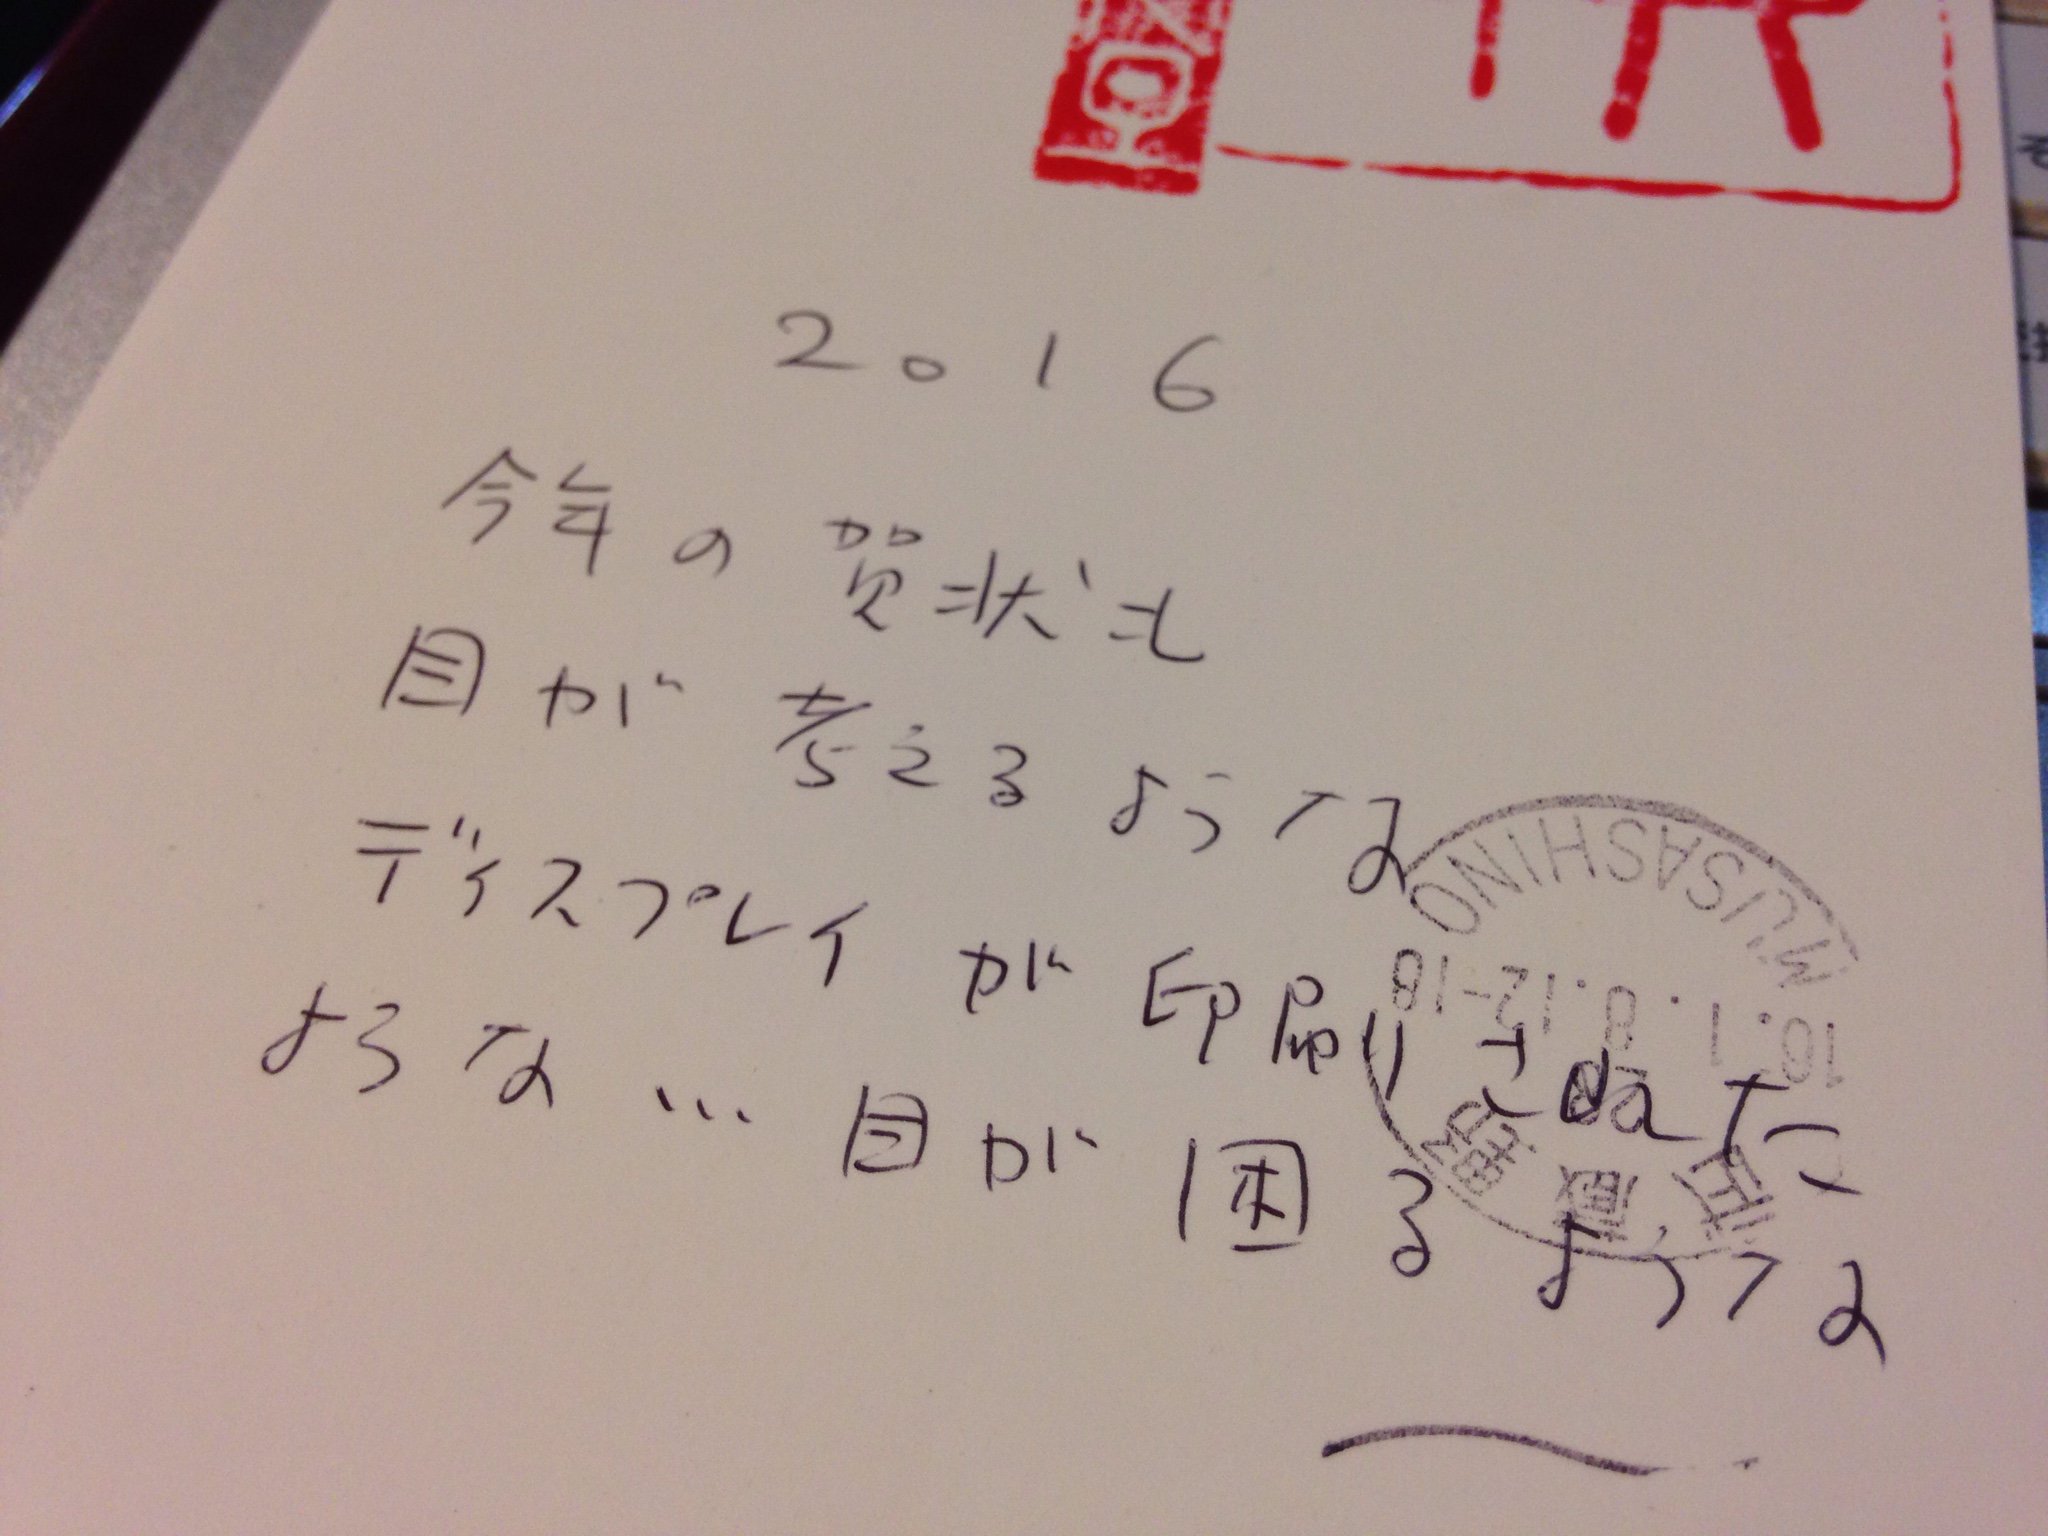 2016
今年の賀状も
目が考えるような
ディスプレイが印刷された
ような…目が困るような
MUSASHINO
16.1.8.12-18
武蔵野